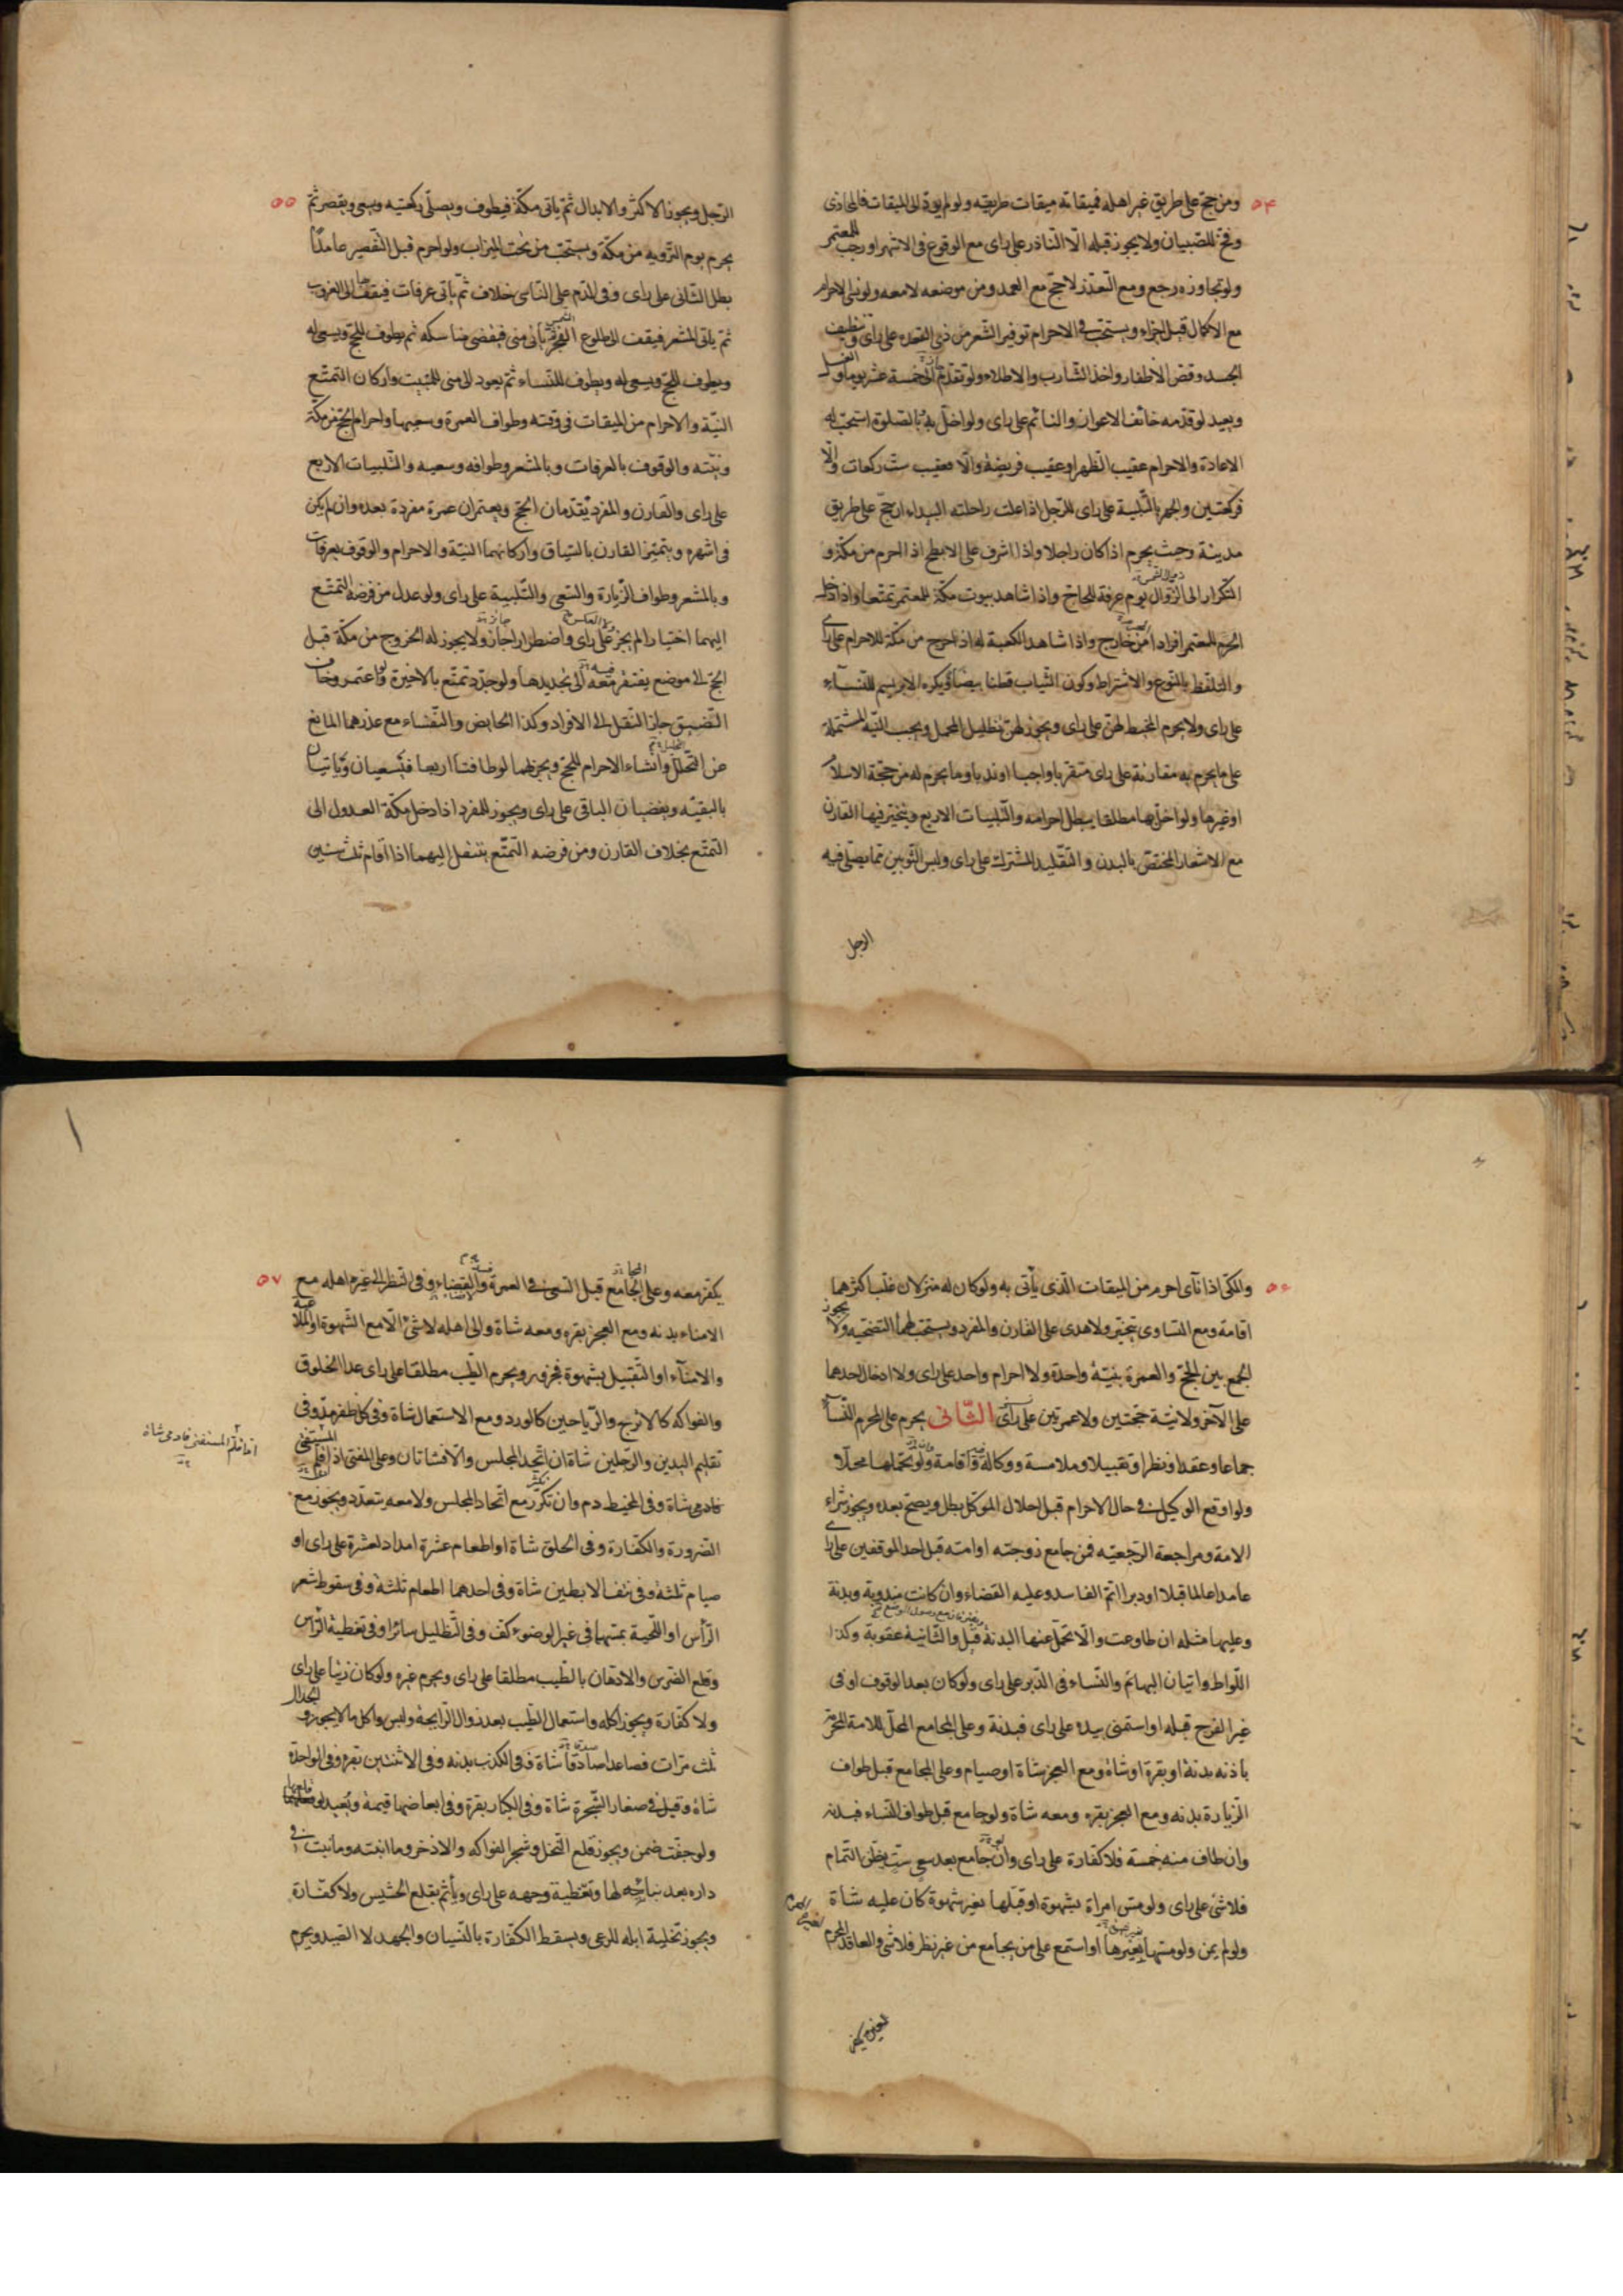 ٥٤
ومن حج على طريق غير اهله فميقاته ميقات طريقه ولو لم يؤد الى الميقات فالمحاذى
وفخ للصبيان ولا يجوز قبله الا الناذر على راى مع الوقوع فى الاشهر او رجب للمعتمر
ولو تجاوزه رجع ومع التعذر لا حج مع العمد ومن موضعه لا معه ولو نسى الاحرام
مع الاكمال قبل اجزاء ويستحب فى الاحرام توفير الشعر من ذى القعده على راى وتنظيف
الجسد وقص الاظفار واخذ الشارب والاطلاء ولو تقدم خمسة عشر يوما والغسل
ويعيد لو قدمه خائف الاعواز والنائم على راى ولو اخل به او بالصلوة استحب له
الاعادة والاحرام عقيب الظهر او عقيب فريضة والا فعقيب ست ركعات والا
فركعتين والجهر بالتلبية على راى للرجل اذا علت راحلته البيداء ان حج على طريق
مدينة وحيث يحرم اذا كان راجلا واذا اشرف على الابطح اذا احرم من مكة و
التكرار الى الزوال يوم عرفة للحاج واذا شاهد بيوت مكة للمعتمر تمتعا واذا دخل
الحرم للمعتمر افرادا من خارج واذا شاهد الكعبة له اذا خرج من مكة للاحرام على راى
والتلفظ بالنوع والاشتراط وكون الثياب قطنا بيضا ويكره الابريسم للنساء
على راى ولا يحرم المخيط لهن على راى ويجوز لهن تظليل المحمل ويجب النية المشتملة
على ما يحرم به مقارنة على راى متقربا واجبا او ندبا وما يحرم له من حجة الاسلام
او غيرها ولو اخل بها مطلقا يبطل احرامه والتلبيات الاربع ويتخير فيها القارن
مع الاشعار المختص بالبدن والتقليد المشترك على راى ولبس الثوبين مما يصلى فيه
الرجل
٥٥
الرجل ويجوز الاكثر والابدال ثم ياتى مكة فيطوف ويصلى ركعتيه ويسعى ويقصر ثم
يحرم يوم التروية من مكة ويستحب من تحت الميزاب ولو احرم قبل التقصير عامدا
بطل الثانى على راى وفى الدم على الناسى خلاف ثم ياتى عرفات فيقف بها الى الغروب
ثم ياتى المشعر فيقف الى طلوع الفجر ثم ياتى منى فيقضى مناسكه ثم يطوف للحج ويسعى له
ويطوف للحج ويسعى له ويطوف للنساء ثم يعود الى منى للمبيت واركان التمتع
النية والاحرام من الميقات فى وقته وطواف العمرة وسعيها واحرام الحج من مكة
ونيته والوقوف بالعرفات وبالمشعر وطوافه وسعيه والتلبيات الاربع
على راى والقارن والمفرد يقدمان الحج ويعتمران عمرة مفردة بعده وان لم يكن
فى اشهره ويتميز القارن بالسياق واركانهما النية والاحرام والوقوف بعرفات
وبالمشعر وطواف الزيارة والسعى والتلبية على راى ولو عدل من فرضه التمتع
اليهما اختيارا لم يجز على راى واضطرارا جاز ولا يجوز له الخروج من مكة قبل
الحج الى موضع يفتقر معه الى تجديدها ولو جدد تمتع بالاخيرة ولو اعتمر وخاف
التضييق جاز النقل الى الافراد وكذا الحايض والنفساء مع عذرهما المانع
عن التحلل وانشاء الاحرام للحج ويجزيهما لو طافتا اربعا فتسعيان وتاتيان
بالبقيه ويقضيان الباقى على راى ويجوز للمفرد اذا دخل مكة العدول الى
التمتع بخلاف القارن ومن فرضه التمتع ينتقل اليهما اذا اقام ثلث سنين
٥٦
والمكى اذا نآى احرم من الميقات الذى يأتى به ولو كان له منزلان غلب اكثرهما
اقامة ومع التساوى يتخير ولا هدى على القارن والمفرد ويستحب لهما التضحيه ولا يجوز
الجمع بين الحج والعمرة بنية واحدة ولا احرام واحد على راى ولا ادخال احدهما
على الآخر ولا نية حجتين ولا عمرتين على راى الثانى يحرم على المحرم النساء
جماعا وعقدا ونظرا وتقبيلا وملامسة ووكالة واقامة ولو تحملها محلا
ولو اوقع الوكيل فى حال الاحرام قبل احلال الموكل بطل ويصح بعده ويجوز شراء
الامة ومراجعة الرجعيه فمن جامع زوجته او امته قبل احد الموقفين على راى
عامدا عالما قبلا او دبرا اتم الفاسد وعليه القضاء وان كانت مندوبة وبدنة
وعليها مثله ان طاوعت والا تحمل عنها البدنة قيل والثانية عقوبة وكذا
اللواط واتيان البهائم والنساء فى الدبر على راى ولو كان بعد الوقوف او فى
غير الفرج قبله او استمنى بيده على راى فبدنة وعلى المجامع المحل للامة المحرمة
باذنه بدنة او بقرة او شاة ومع العجز شاة او صيام وعلى المجامع قبل طواف
الزيارة بدنه ومع العجز بقره ومعه شاة ولو جامع قبل طواف النساء فبدنه
وان طاف منه خمسة فلا كفارة على راى وان جامع بعد سعى ست يظن التمام
فلا شئ على راى ولو مس امراة بشهوة او قبلها بغير شهوة كان عليه شاة
ولو لم يمن ولو مسها بغيرها او استمع على من يجامع من غير نظر فلا شئ والعاقد المحرم
٥٧
يكفر معه وعلى الجامع قبل السعى فى العمرة والقضاء وفى النظر الى غير اهله مع
الامناء بدنه ومع العجز بقره ومعه شاة والى اهله لا شئ الا مع الشهوة
والامناء او التقبيل بشهوة فجزور ويحرم الطيب مطلقا على راى عدا الخلوق
والفواكه كالاترج والرياحين كالورد ومع الاستعمال شاة وفى كل ظفر مد وفى
تقليم اليدين والرجلين شاة ان اتحد المجلس والا فشاتان وعلى المفتى اذا قلم المستفتى
فادمى شاة وفى المخيط دم وان تكرر مع اتحاد المجلس ولا معه يتعدد ويجوز مع
الضرورة والكفارة وفى الحلق شاة او اطعام عشرة امداد لعشرة على راى او
صيام ثلثة وفى نتف الابطين شاة وفى احدهما اطعام ثلثة وفى سقوط شعر
الرأس او اللحية بمسهما فى غير الوضوء كف وفى التظليل سائرا وفى تغطية الراس
وقلع الضرس والادهان بالطيب مطلقا على راى ويحرم غيره ولو كان زيتا على راى
ولا كفارة ويجوز اكله واستعمال الطيب بعد زوال الرايحة ولبس واكل ما لا يجوز والجدال
ثلث مرات فصاعدا صادقا شاة وفى الكذب بدنه وفى الاثنتين بقره وفى الواحدة
شاة وقيل فى صغار الشجرة شاة وفى الكبار بقرة وفى ابعاضها قيمة ويعيد
ولو جفت ضمن ويجوز قلع النخل وشجر الفواكه والاذخر وما انبته وما نبت فى
داره بعد بنائه لها وتغطية وجهه على راى ويأثم بقلع الحشيش ولا كفارة
ويجوز تخلية ابله للرعى ويسقط الكفارة بالنسيان والجهد لا الصيد ويحرم